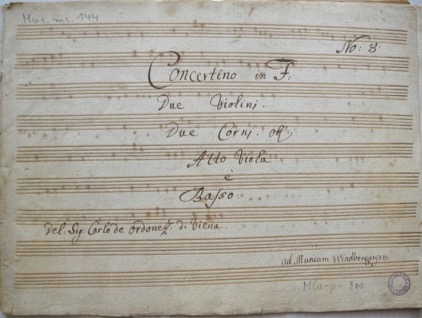 Mus. ms. 144
No: 8
Concertino in F.
Due Violini.
Due Corni.
Alto Viola
è
Basso.
del. Sig Carlo de Ordonez. di Viena.
ad Musicam Windbergensem